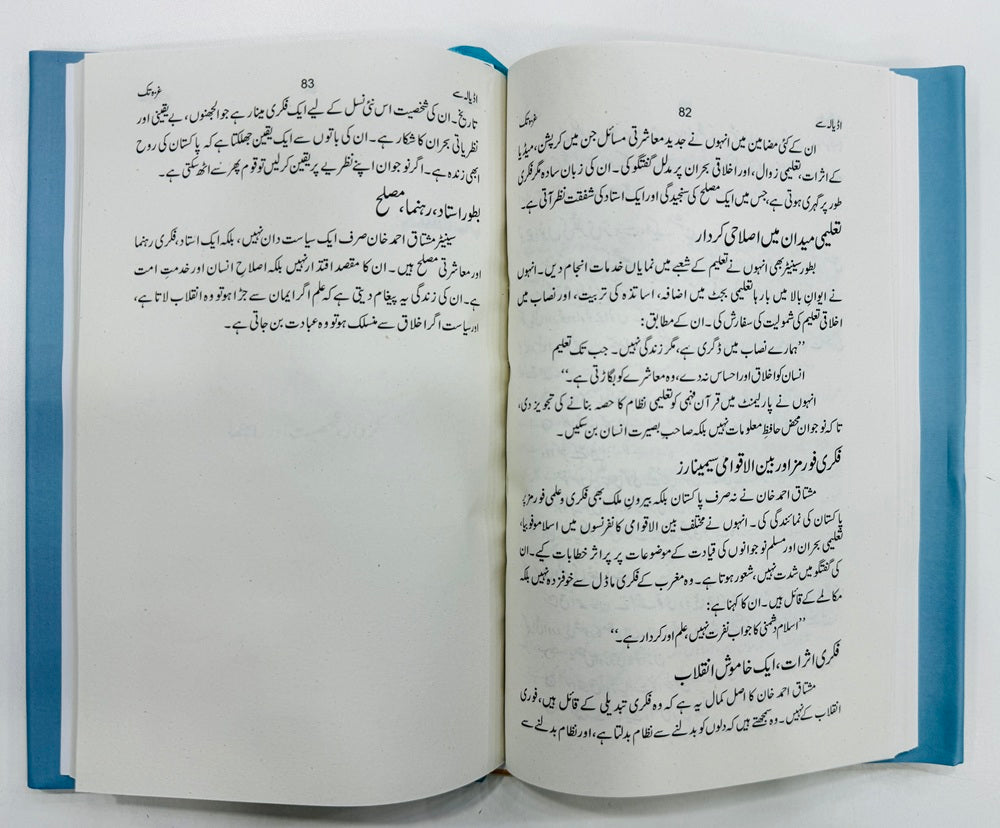 اڈیالہ سے 82 غزہ تک
ان کے کئی مضامین میں انہوں نے جدید معاشرتی مسائل جن میں کرپشن، میڈیا
کے اثرات، تعلیمی زوال، اور اخلاقی بحران پر مدلل گفتگو کی۔ ان کی زبان سادہ مگر فکری
طور پر گہری ہوتی ہے، جس میں ایک مصلح کی سنجیدگی اور ایک استاد کی شفقت نظر آتی ہے۔
تعلیمی میدان میں اصلاحی کردار
بطور سینیٹر بھی انہوں نے تعلیم کے شعبے میں نمایاں خدمات انجام دیں۔ انہوں
نے ایوانِ بالا میں بارہا تعلیمی بجٹ میں اضافہ، اساتذہ کی تربیت، اور نصاب میں
اخلاقی تعلیم کی شمولیت کی سفارش کی۔ ان کے مطابق:
’’ہمارے نصاب میں ڈگری ہے، مگر زندگی نہیں۔ جب تک تعلیم
انسان کو اخلاق اور احساس نہ دے، وہ معاشرے کو بگاڑتی ہے۔‘‘
انہوں نے پارلیمنٹ میں قرآن فہمی کو تعلیمی نظام کا حصہ بنانے کی تجویز دی،
تاکہ نوجوان محض حافظِ معلومات نہیں بلکہ صاحبِ بصیرت انسان بن سکیں۔
فکری فورمز اور بین الاقوامی سیمینارز
مشتاق احمد خان نے نہ صرف پاکستان بلکہ بیرونِ ملک بھی فکری و علمی فورمز پر
پاکستان کی نمائندگی کی۔ انہوں نے مختلف بین الاقوامی کانفرنسوں میں اسلاموفوبیا،
تعلیمی بحران اور مسلم نوجوانوں کی قیادت کے موضوعات پر پراثر خطابات کیے۔ ان
کی گفتگو میں شدت نہیں، شعور ہوتا ہے۔ وہ مغرب کے فکری ماڈل سے خوفزدہ نہیں بلکہ
مکالمے کے قائل ہیں۔ ان کا کہنا ہے:
’’اسلام دشمنی کا جواب نفرت نہیں، علم اور کردار ہے۔‘‘
فکری اثرات، ایک خاموش انقلاب
مشتاق احمد خان کا اصل کمال یہ ہے کہ وہ فکری تبدیلی کے قائل ہیں، فوری
انقلاب کے نہیں۔ وہ سمجھتے ہیں کہ دلوں کو بدلنے سے نظام بدلتا ہے، اور نظام بدلنے سے
اڈیالہ سے 83 غزہ تک
تاریخ۔ ان کی شخصیت اس نئی نسل کے لیے ایک فکری مینار ہے جو الجھنوں، بے یقینی اور
نظریاتی بحران کا شکار ہے۔ ان کی باتوں سے ایک یقین جھلکتا ہے کہ پاکستان کی روح
ابھی زندہ ہے۔ اگر نوجوان اپنے نظریے پر یقین کرلیں تو قوم پھر سے اٹھ سکتی ہے۔
بطور استاد، رہنما، مصلح
سینیٹر مشتاق احمد خان صرف ایک سیاست دان نہیں، بلکہ ایک استاد، فکری رہنما
اور معاشرتی مصلح ہیں۔ ان کا مقصد اقتدار نہیں بلکہ اصلاحِ انسان اور خدمتِ امت
ہے۔ ان کی زندگی یہ پیغام دیتی ہے کہ علم اگر ایمان سے جڑا ہو تو وہ انقلاب لاتا ہے،
اور سیاست اگر اخلاق سے منسلک ہو تو وہ عبادت بن جاتی ہے۔